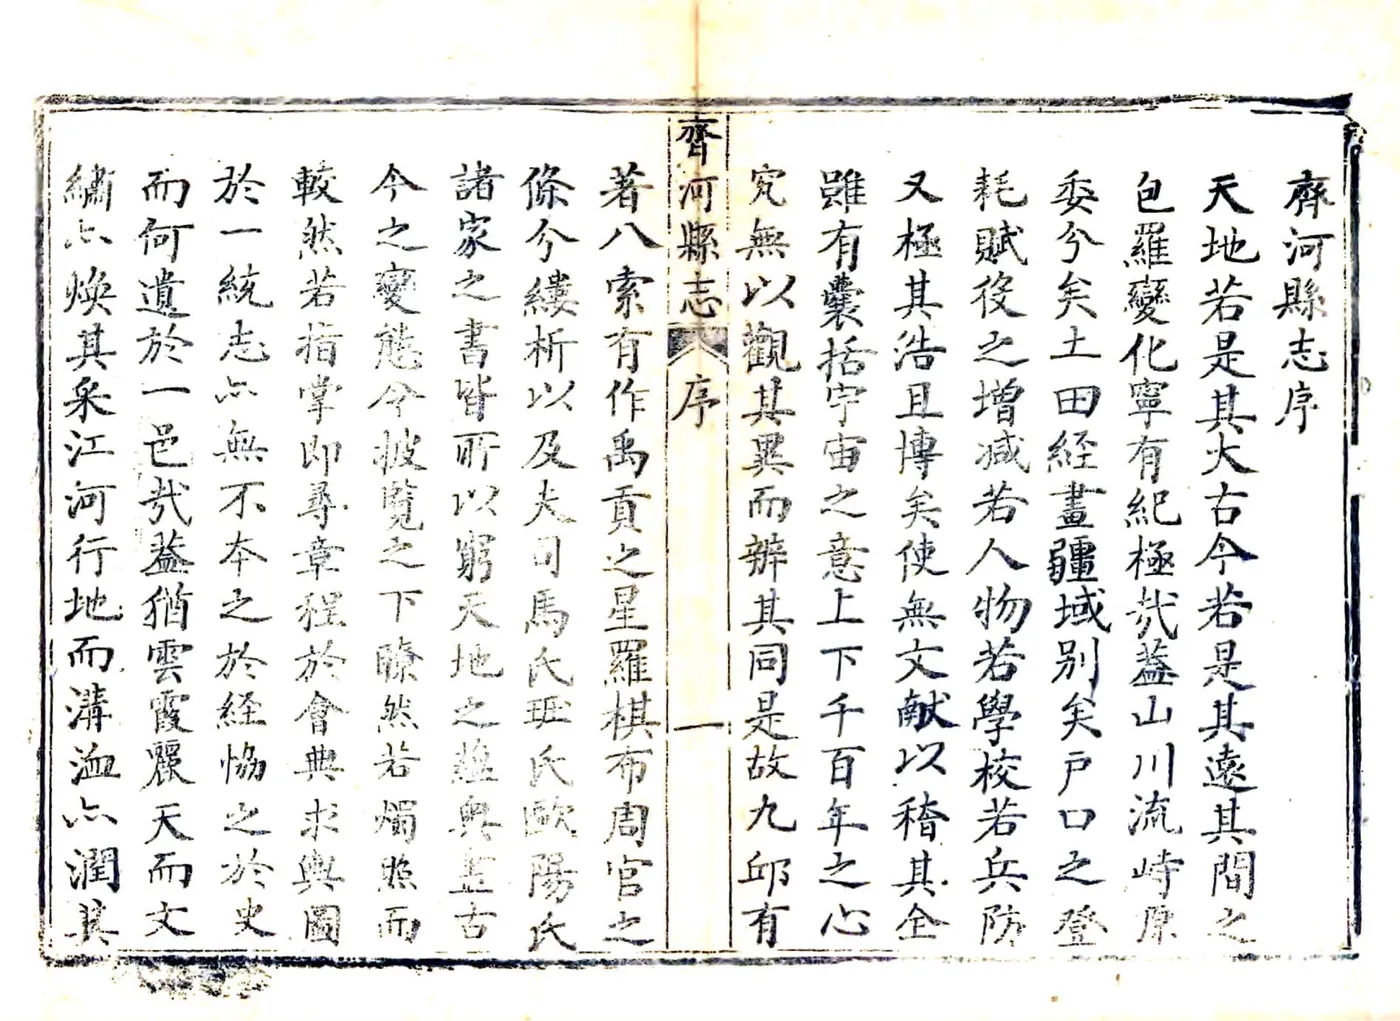 齊河縣志序
天地若是其大古今若是其遠其間之
包羅變化寧有紀極哉葢山川流峙原
委兮矣土田経畫疆域別矣戸口之登
耗賦役之增减若人物若學校若兵防
又極其浩且博矣使無文献以稽其全
雖有囊括宇宙之意上下千百年之心
究無以觀其異而辨其同是故九邱有
齊河縣志 序 一
著八索有作禹貢之星羅棋布周官之
條兮縷析以及夫司馬氏班氏歐陽氏
諸家之書皆所以窮天地之蘊奥盡古
今之變態今披覽之下瞭然若燭照而
較然若指掌即尋章程於會典求輿圖
於一統志亦無不本之於経恊之於史
而何遺於一邑哉葢猶雲霞麗天而文
繡亦煥其采江河行地而溝洫亦潤其